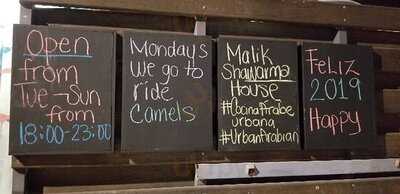 Open
from
Tue-Sun
from
18:00-23:00
Mondays
we go to
ride
Camels
Malik
Shawarma
House
#CocinaArabe
urbana
#UrbanArabian
Feliz
2019
Happy